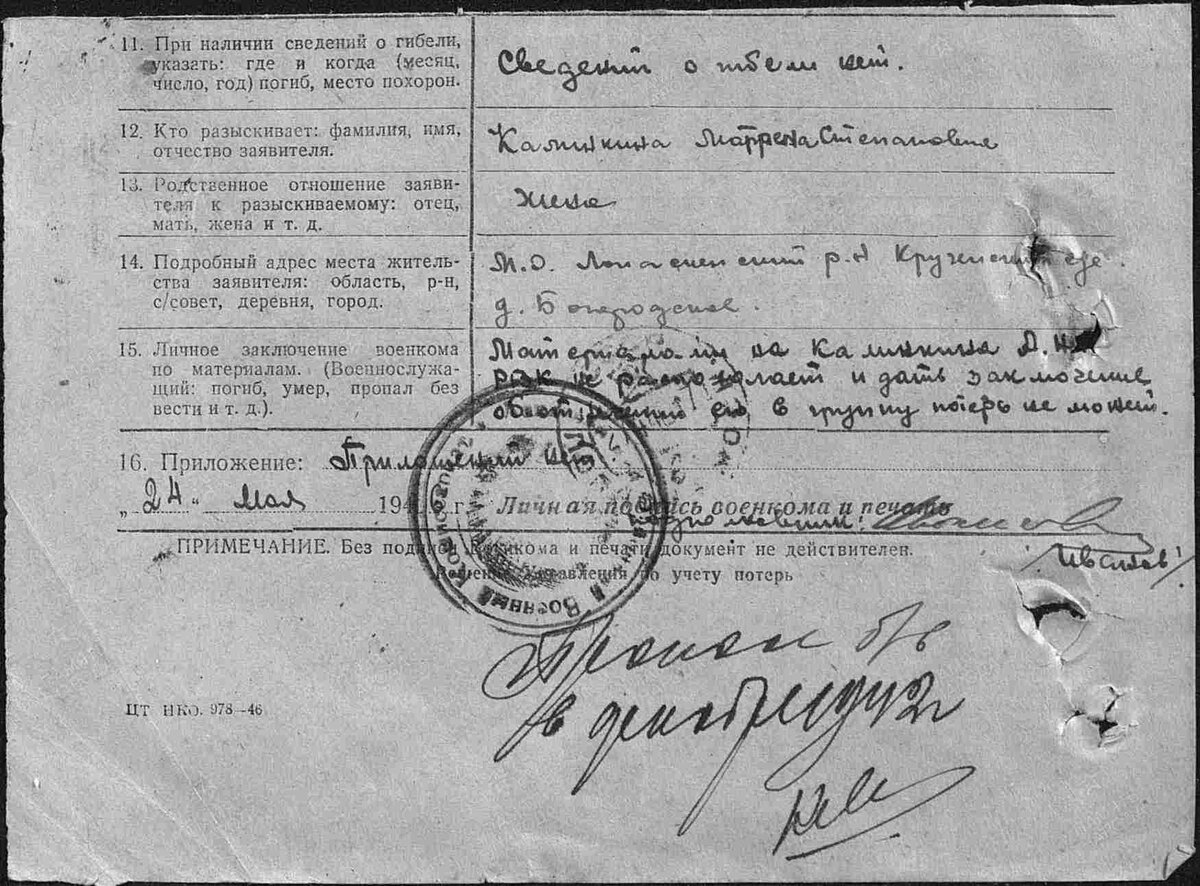 11. При наличии сведений о гибели,
указать: где и когда (месяц,
число, год) погиб, место похорон.
Сведений о гибели нет.
12. Кто разыскивает: фамилия, имя,
отчество заявителя.
Калинкина Матрена Степановна
13. Родственное отношение заяви-
теля к разыскиваемому: отец,
мать, жена и т. д.
жена
14. Подробный адрес места житель-
ства заявителя: область, р-н,
с/совет, деревня, город.
М.О. Лопасненский р-н
д. Богородское.
15. Личное заключение военкома
по материалам. (Военнослужа-
щий: погиб, умер, пропал без
вести и т. д.).
Материалами на Калинкина
не располагает и дать заключение
в группу потерь не может.
16. Приложение: Приложений нет
„24“ мая 194 г. Личная подпись военкома и печать
Иванов
ПРИМЕЧАНИЕ. Без подписи военкома и печати документ не действителен.
Решение Управления по учету потерь
Военный
Пропал б/в
в декабре 42г
ЦТ НКО. 978—46